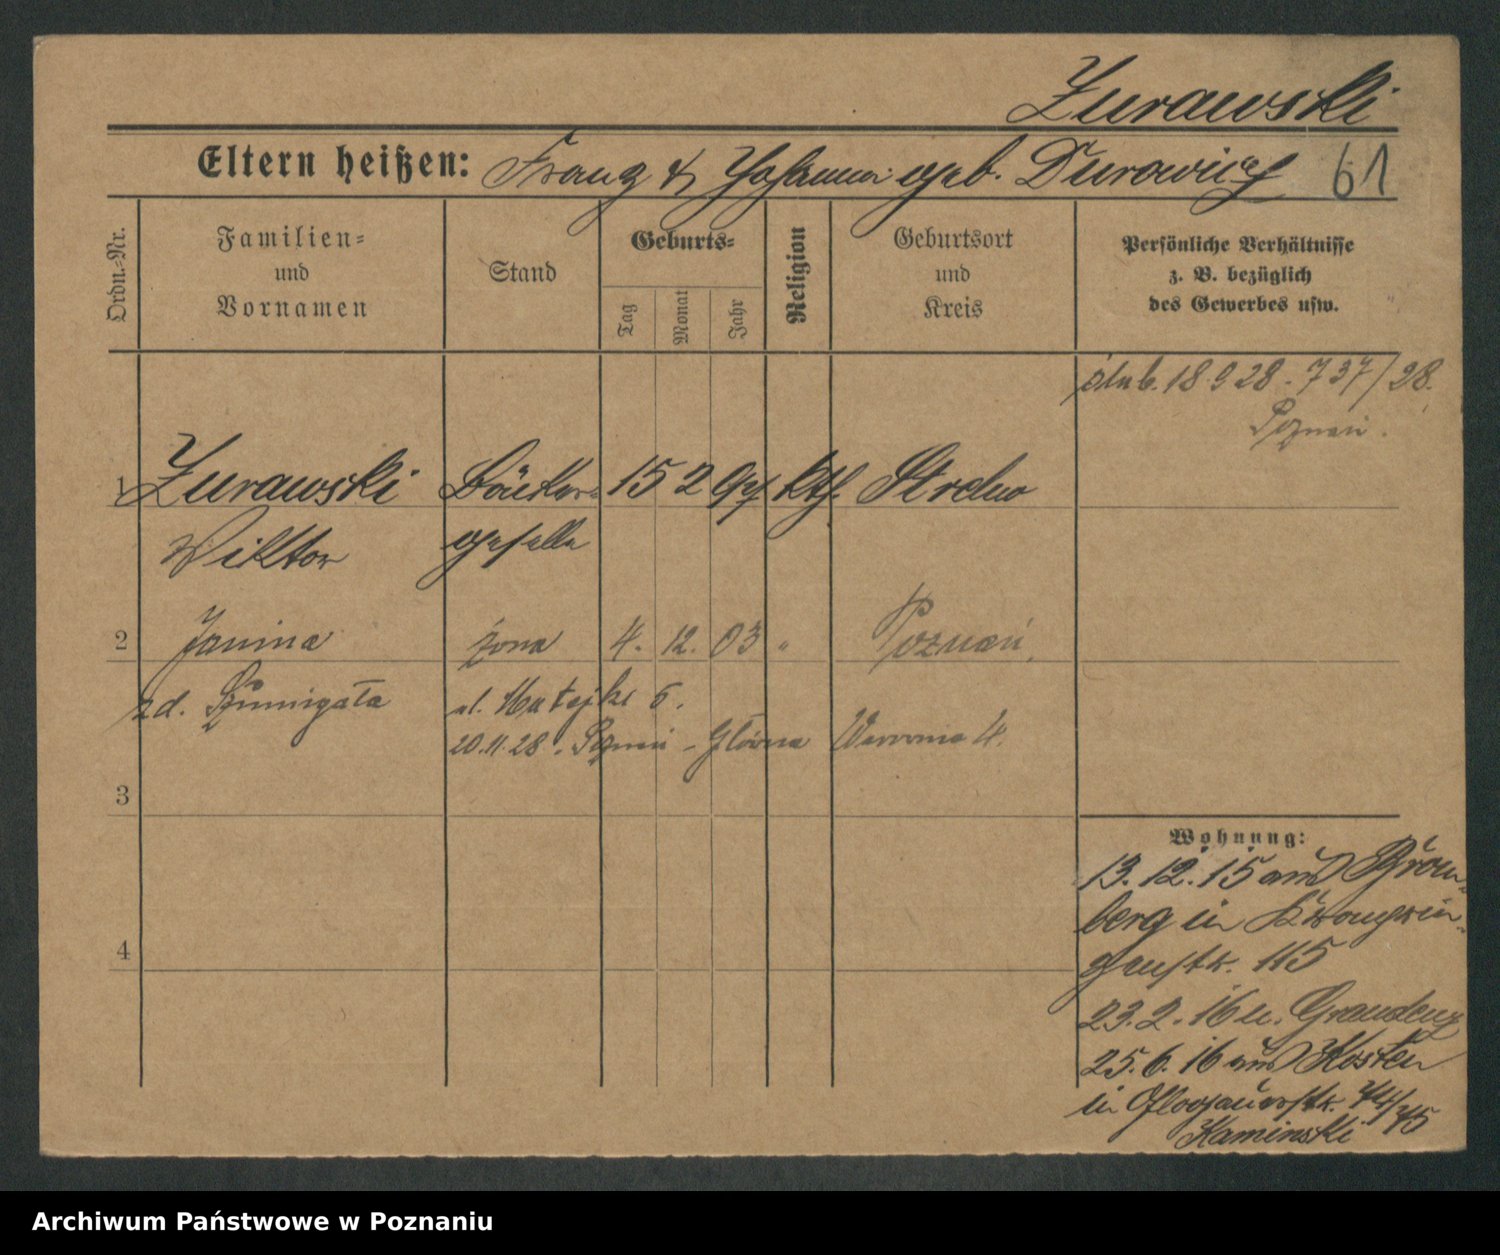 Zurawski
Eltern heißen: Franz & Johanna geb. Durowicz 61
Ordn.-Nr.
Familien-
und
Vornamen
Stand
Geburts-
Tag
Monat
Jahr
Religion
Geburtsort
und
Kreis
Persönliche Verhältnisse
z. B. bezüglich
des Gewerbes usw.
ślub. 18.9.28 - 737/28.
Poznań.
1 Zurawski Bäcker- 15 2 97 kth.
Wiktor geselle
2 Janina żona 4. 12. 03 " Poznań
zd. ul. Matejki 6.
20.11.28. Poznań - Główna 4.
3
4
Wohnung:
13.12.15 aus Brom-
berg in Kronprin-
zenstr. 115
23.2.16 n. Graudenz
25.6.16 aus Kosten
in Glogauerstr. 74/75
Kaminski
Archiwum Państwowe w Poznaniu